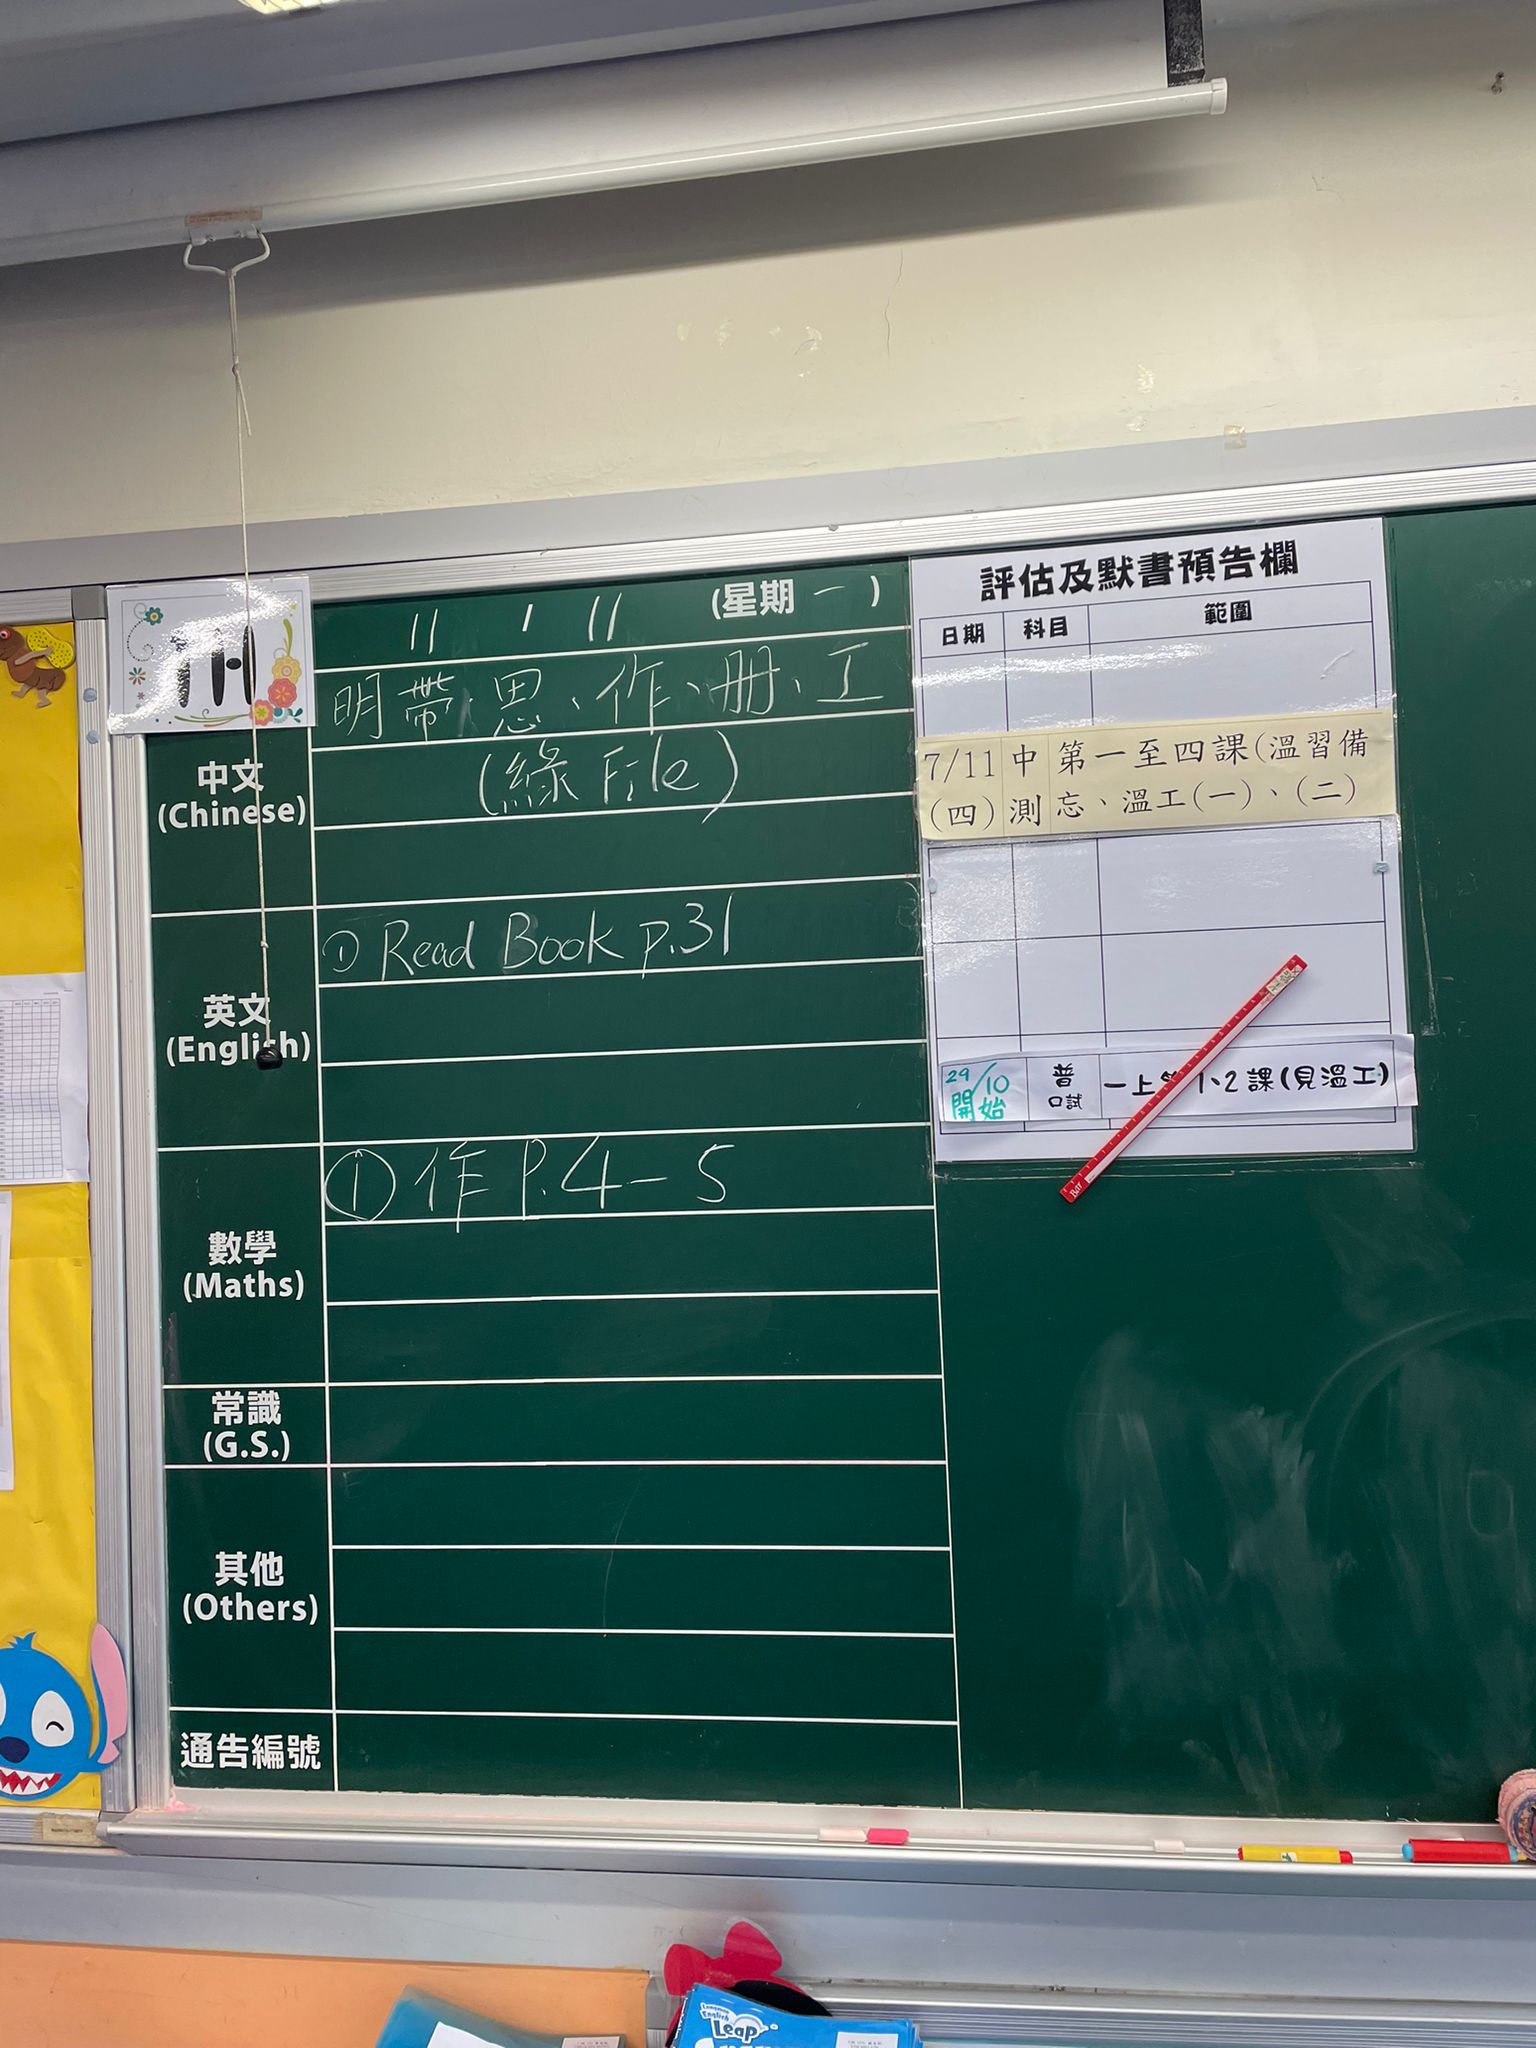 11 / 11 (星期一)
明帶思、作、冊、工
中文
(Chinese)
(綠 File)
英文
(English)
① Read Book p.31
數學
(Maths)
① 作 P.4-5
常識
(G.S.)
其他
(Others)
通告編號
評估及默書預告欄
日期 科目 範圍
7/11 中 第一至四課(溫習備
(四) 測 忘、溫工(一)、(二)
29/10 普 一上 1、2課(見溫工)
開始 口試
Bar
Longman
English
Leap